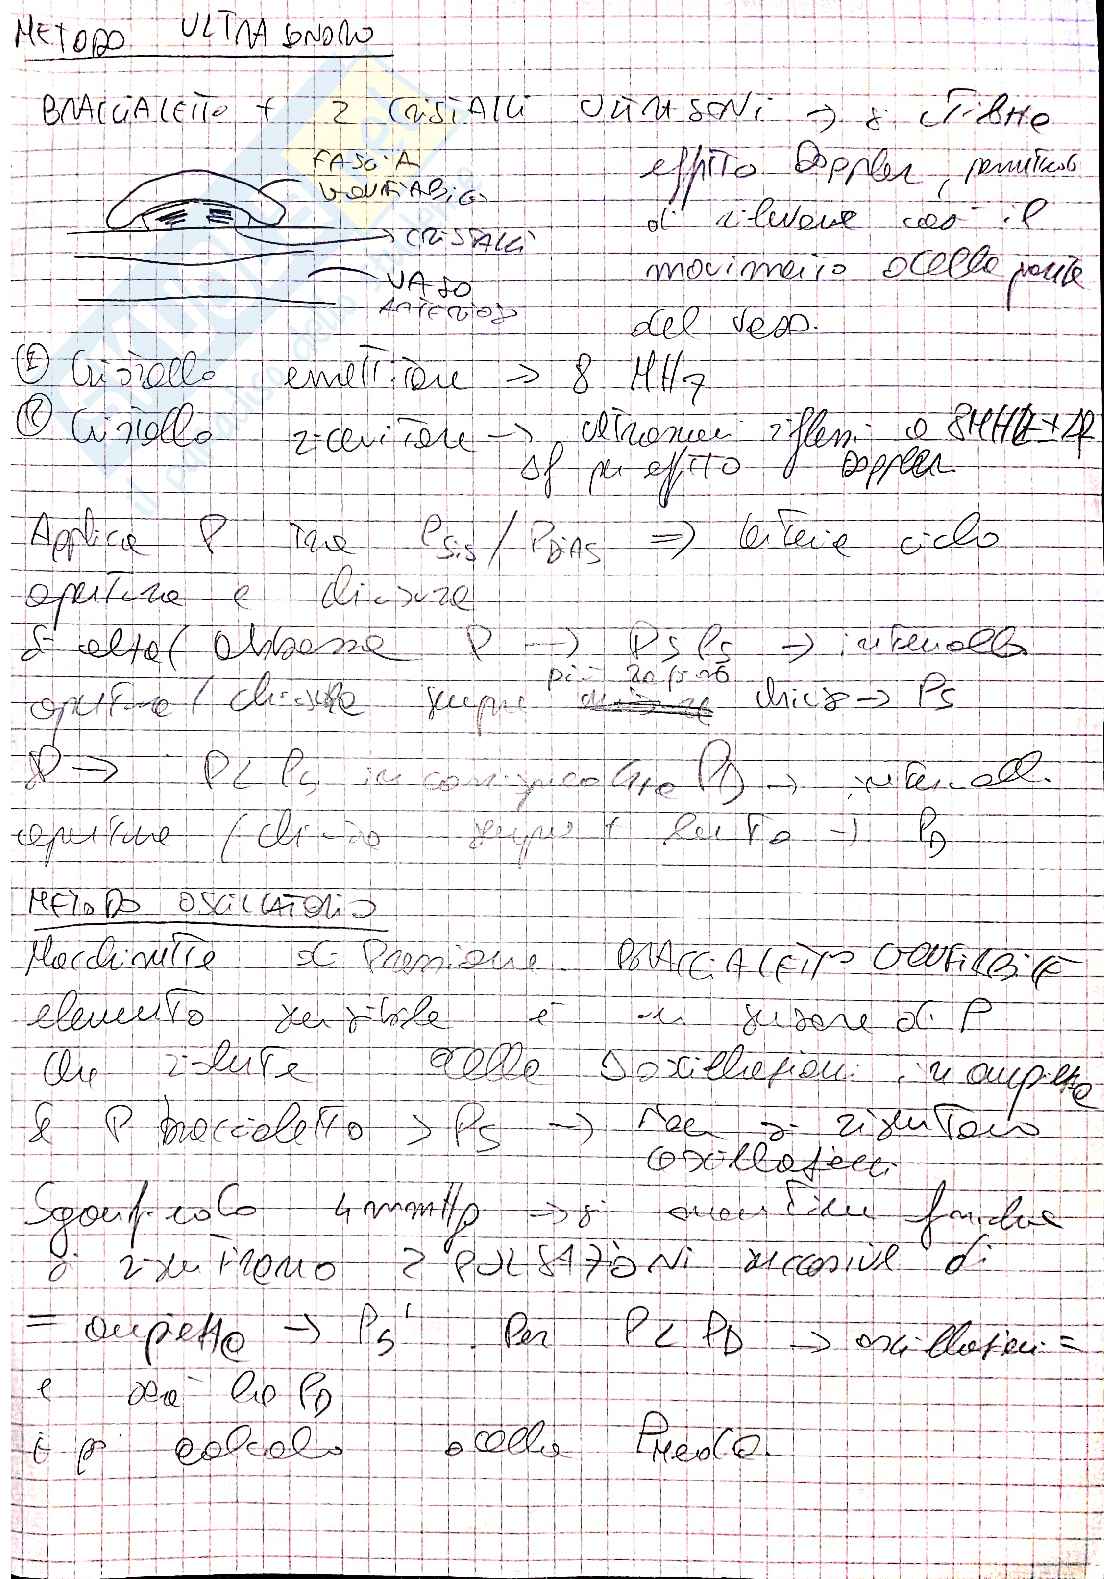 METODO ULTRASUONO
BRACCIALETTO + 2 CRISTALLI ULTRASONI → si sfrutta
effetto Doppler, permettendo
di rilevare così il
movimento della parete
del vaso.
FASCIA
GONFIABILE
CRISTALLI
VASO
ARTERIOSO
(E) Cristallo emettitore → 8 MHz
(R) Cristallo ricevitore → ultrasuoni riflessi a 8MHz + Δf
Δf per effetto Doppler
Applica P tra PSIS/PDIAS ⇒ ciclo
apertura e chiusura
Si alza/abbassa P → P≤PS → intervallo
apertura/chiusura sempre più rapido → PS
P → P< PS in PD → intervallo
apertura/ sempre + lento → PD
METODO OSCILLATORIO
Macchinetta di Pressione BRACCIALETTO GONFIABILE
elemento sensibile è un sensore di P
che risente delle oscillazioni in ampiezza
Se P braccialetto > PS → Non si risentono
oscillazioni
Sgonfiando 4mmHg → si finché
si risentiranno 2 PULSAZIONI successive di
= ampiezza → PS. Per P< PD → oscillazioni =
e così ho PD
e calcolo della PMedia.